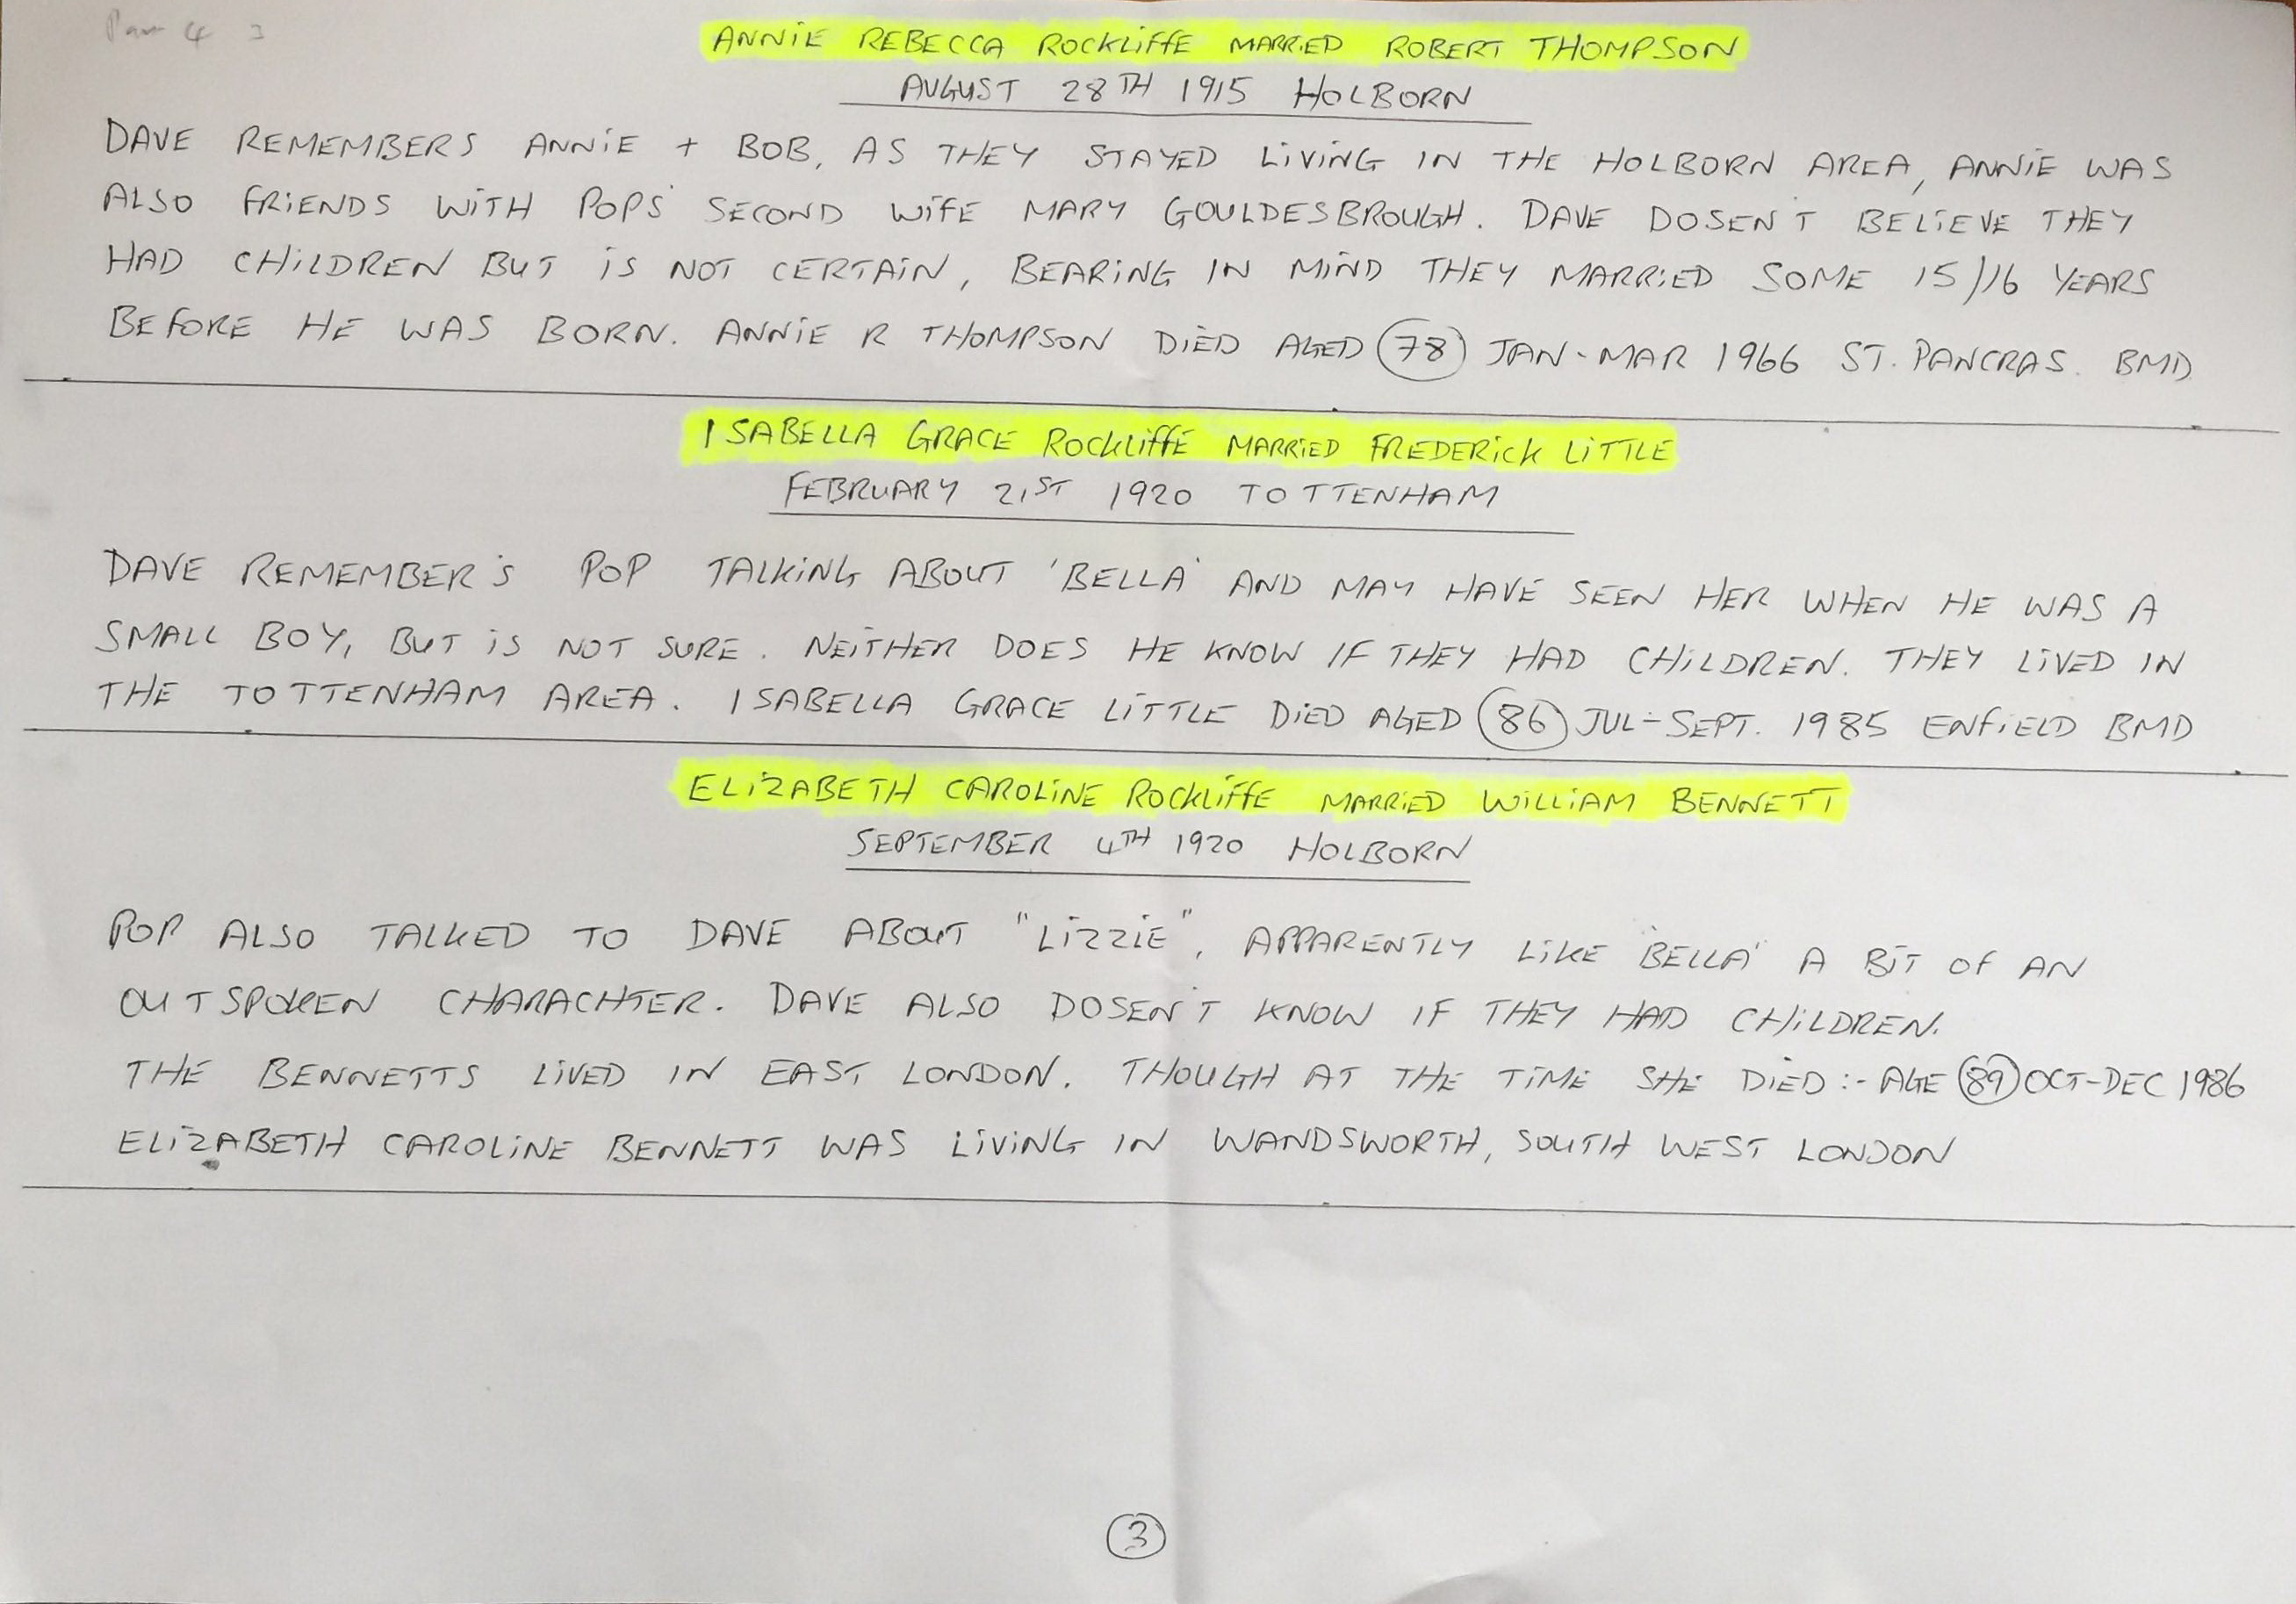 ANNIE REBECCA ROCKLIFFE MARRIED ROBERT THOMPSON
AUGUST 28TH 1915 HOLBORN
DAVE REMEMBERS ANNIE + BOB, AS THEY STAYED LIVING IN THE HOLBORN AREA, ANNIE WAS
ALSO FRIENDS WITH POPS' SECOND WIFE MARY GOULDESBROUGH. DAVE DOSEN'T BELIEVE THEY
HAD CHILDREN BUT IS NOT CERTAIN, BEARING IN MIND THEY MARRIED SOME 15/16 YEARS
BEFORE HE WAS BORN. ANNIE R THOMPSON DIED AGED 78 JAN-MAR 1966 ST. PANCRAS. BMD
ISABELLA GRACE ROCKLIFFE MARRIED FREDERICK LITTLE
FEBRUARY 21ST 1920 TOTTENHAM
DAVE REMEMBER'S POP TALKING ABOUT 'BELLA' AND MAY HAVE SEEN HER WHEN HE WAS A
SMALL BOY, BUT IS NOT SURE. NEITHER DOES HE KNOW IF THEY HAD CHILDREN. THEY LIVED IN
THE TOTTENHAM AREA. ISABELLA GRACE LITTLE DIED AGED 86 JUL-SEPT. 1985 ENFIELD BMD
ELIZABETH CAROLINE ROCKLIFFE MARRIED WILLIAM BENNETT
SEPTEMBER 4TH 1920 HOLBORN
POP ALSO TALKED TO DAVE ABOUT "LIZZIE", APPARENTLY LIKE 'BELLA' A BIT OF AN
OUTSPOKEN CHARACHTER. DAVE ALSO DOSEN'T KNOW IF THEY HAD CHILDREN.
THE BENNETTS LIVED IN EAST LONDON. THOUGH AT THE TIME SHE DIED :- AGE 89 OCT-DEC 1986
ELIZABETH CAROLINE BENNETT WAS LIVING IN WANDSWORTH, SOUTH WEST LONDON
3